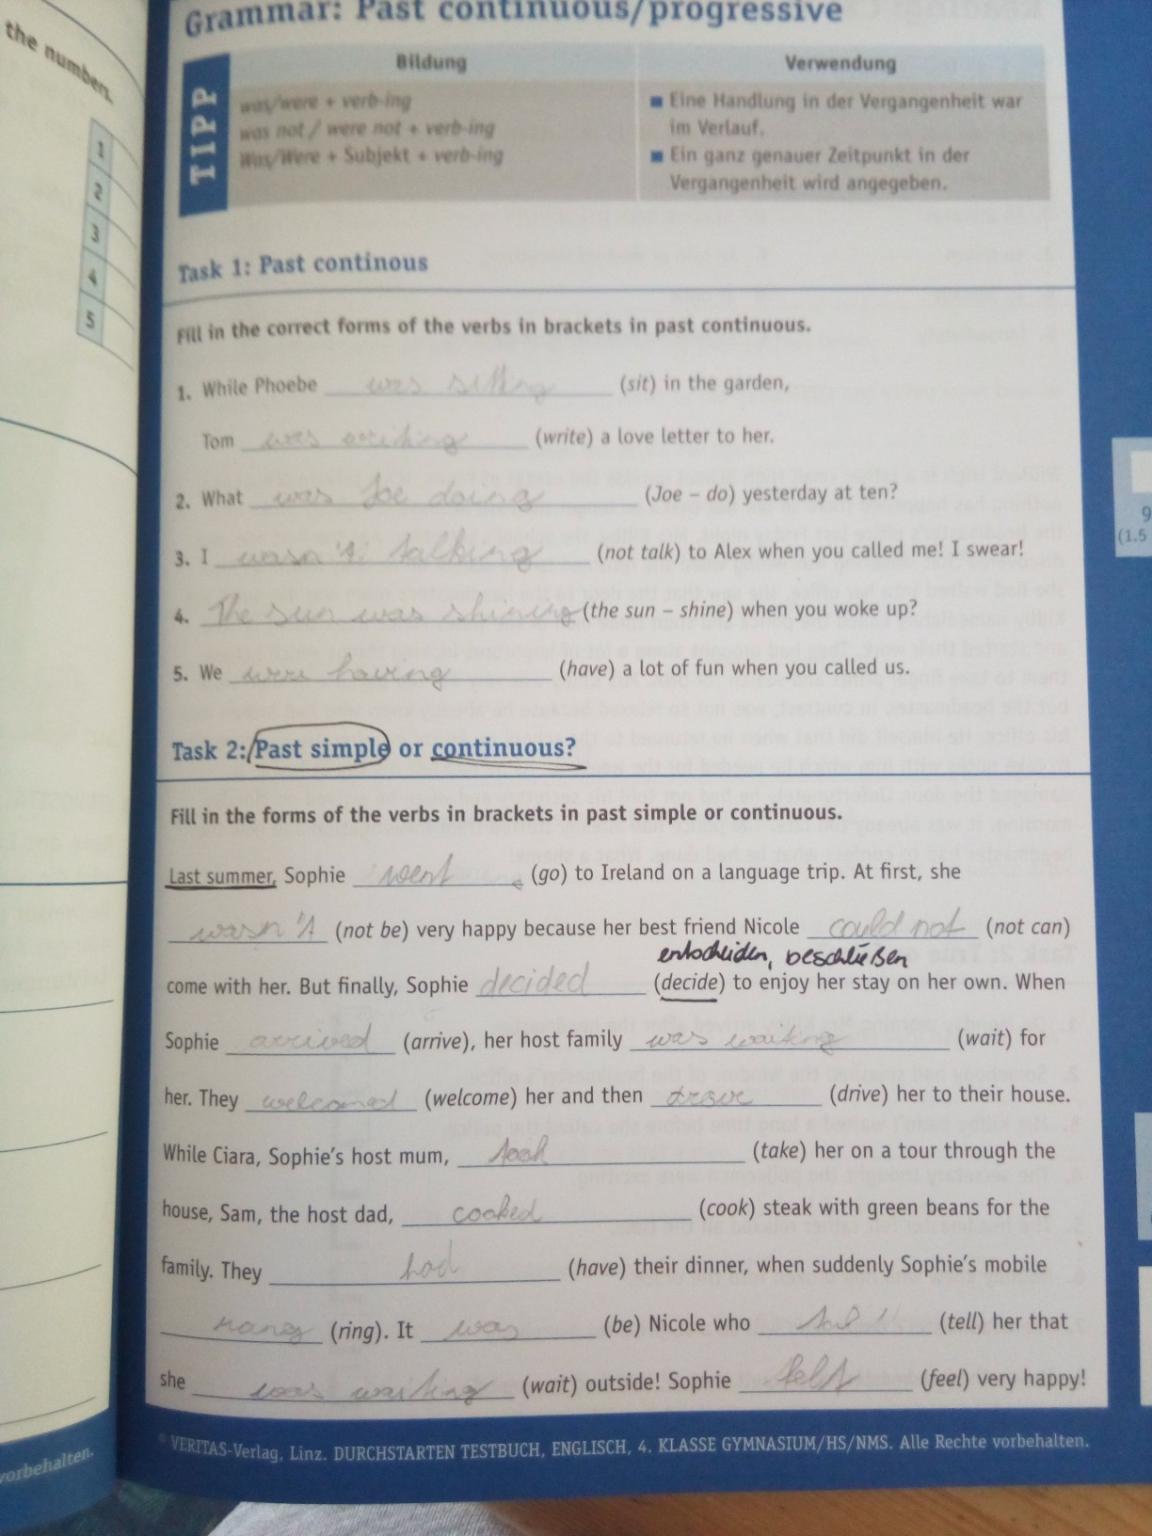 the numbers.
1
2
3
4
5
Grammar: Past continuous/progressive
TIPP
Bildung
Verwendung
was/were + verb-ing
was not / were not + verb-ing
Was/Were + Subjekt + verb-ing
Eine Handlung in der Vergangenheit war
im Verlauf.
Ein ganz genauer Zeitpunkt in der
Vergangenheit wird angegeben.
Task 1: Past continous
Fill in the correct forms of the verbs in brackets in past continuous.
1. While Phoebe was sitting (sit) in the garden,
Tom was writing (write) a love letter to her.
2. What was Joe doing (Joe – do) yesterday at ten?
3. I wasn't talking (not talk) to Alex when you called me! I swear!
4. The sun was shining (the sun – shine) when you woke up?
5. We were having (have) a lot of fun when you called us.
Task 2: Past simple or continuous?
Fill in the forms of the verbs in brackets in past simple or continuous.
Last summer, Sophie went (go) to Ireland on a language trip. At first, she
wasn't (not be) very happy because her best friend Nicole could not (not can)
entscheiden, beschließen
come with her. But finally, Sophie decided (decide) to enjoy her stay on her own. When
Sophie arrived (arrive), her host family was waiting (wait) for
her. They welcomed (welcome) her and then drove (drive) her to their house.
While Ciara, Sophie's host mum, took (take) her on a tour through the
house, Sam, the host dad, cooked (cook) steak with green beans for the
family. They had (have) their dinner, when suddenly Sophie's mobile
rang (ring). It was (be) Nicole who (tell) her that
she was waiting (wait) outside! Sophie felt (feel) very happy!
© VERITAS-Verlag, Linz. DURCHSTARTEN TESTBUCH, ENGLISCH, 4. KLASSE GYMNASIUM/HS/NMS. Alle Rechte vorbehalten.
vorbehalten.
9
(1.5